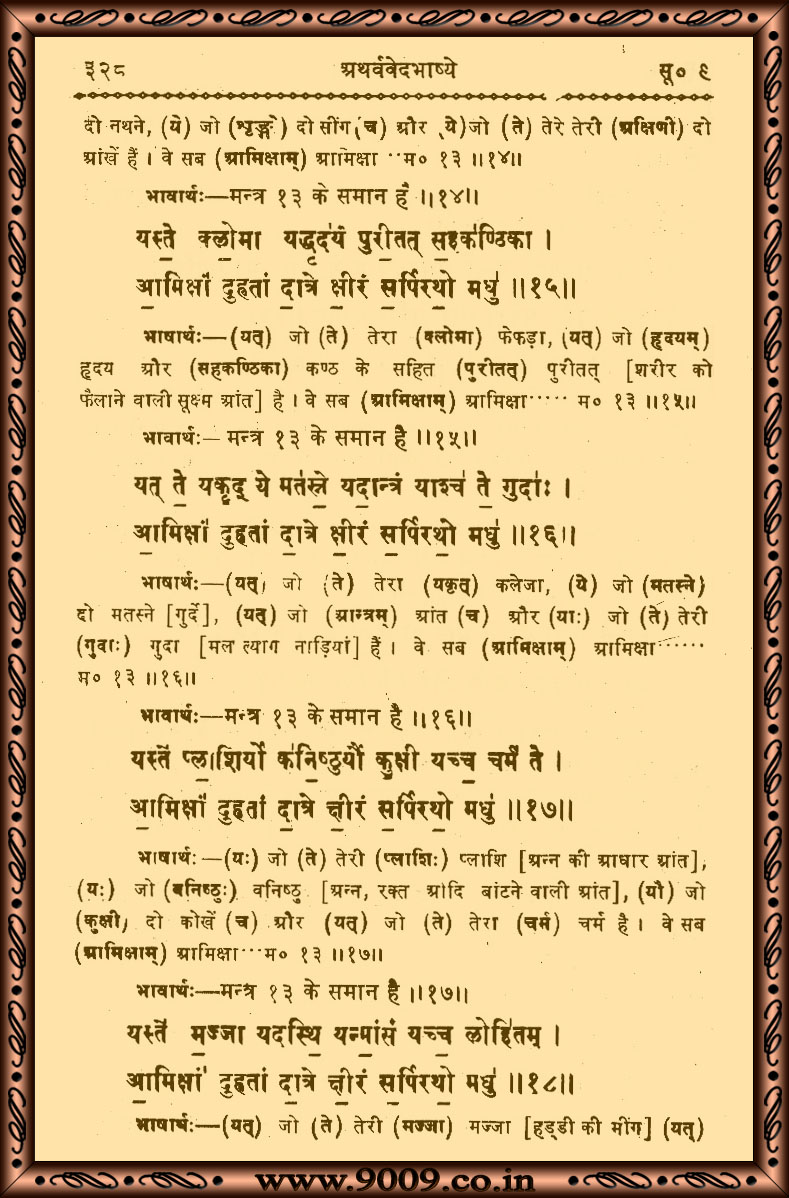 ३२८ अथर्ववेदभाष्ये सू० ९
दो नथने, (ये) जो (शृङ्गे) दो सींग (च) और (ये) जो (ते) तेरे तेरी (अक्षिणी) दो
आंखें हैं । वे सब (आमिक्षाम्) आमिक्षा ··म० १३ ॥१४॥
भावार्थः—मन्त्र १३ के समान है ॥१४॥
यस्ते॒ क्लो॒मा यद्धृद॑यं पुरी॒तत् स॒हक॑ण्ठिका ।
आ॒मिक्षां॑ दुह्रतां दा॒त्रे क्षी॒रं स॒र्पिरथो॒ मधु॑ ॥१५॥
भाषार्थः—(यत्) जो (ते) तेरा (क्लोमा) फेफड़ा, (यत्) जो (हृदयम्)
हृदय और (सहकण्ठिका) कण्ठ के सहित (पुरीतत्) पुरीतत् [शरीर को
फैलाने वाली सूक्ष्म आंत] है । वे सब (आमिक्षाम्) आमिक्षा····· म० १३ ॥१५॥
भावार्थः—मन्त्र १३ के समान है ॥१५॥
यत् ते॒ यकृ॒द् ये मत॑स्ने॒ यदा॒न्त्रं याश्च॑ ते॒ गुदाः॑ ।
आ॒मिक्षां॑ दुह्रतां दा॒त्रे क्षी॒रं स॒र्पिरथो॒ मधु॑ ॥१६॥
भाषार्थः—(यत्) जो (ते) तेरा (यकृत्) कलेजा, (ये) जो (मतस्ने)
दो मतस्ने [गुर्दे], (यत्) जो (आन्त्रम्) आंत (च) और (याः) जो (ते) तेरी
(गुदाः) गुदा [मल त्याग नाड़ियां] हैं । वे सब (आमिक्षाम्) आमिक्षा······
म० १३ ॥१६॥
भावार्थः—मन्त्र १३ के समान है ॥१६॥
यस्ते॑ प्ला॒शिर्यो क॑नि॒ष्ठुर्यौ कु॒क्षी यच्च॒ चर्म॑ ते ।
आ॒मिक्षां॑ दुह्रतां दा॒त्रे क्षी॒रं स॒र्पिरथो॒ मधु॑ ॥१७॥
भाषार्थः—(यः) जो (ते) तेरी (प्लाशिः) प्लाशि [अन्न की आधार आंत],
(यः) जो (वनिष्ठुः) वनिष्ठु [अन्न, रक्त आदि बांटने वाली आंत], (यौ) जो
(कुक्षी) दो कोखें (च) और (यत्) जो (ते) तेरा (चर्म) चर्म है । वे सब
(आमिक्षाम्) आमिक्षा···म० १३ ॥१७॥
भावार्थः—मन्त्र १३ के समान है ॥१७॥
यस्ते॑ म॒ज्जा यदस्थि॒ यन्मां॒सं यच्च॒ लोहि॑तम् ।
आ॒मिक्षां॑ दुह्रतां दा॒त्रे क्षी॒रं स॒र्पिरथो॒ मधु॑ ॥१८॥
भाषार्थः—(यत्) जो (ते) तेरी (मज्जा) मज्जा [हड्डी की मींग] (यत्)
www.9009.co.in